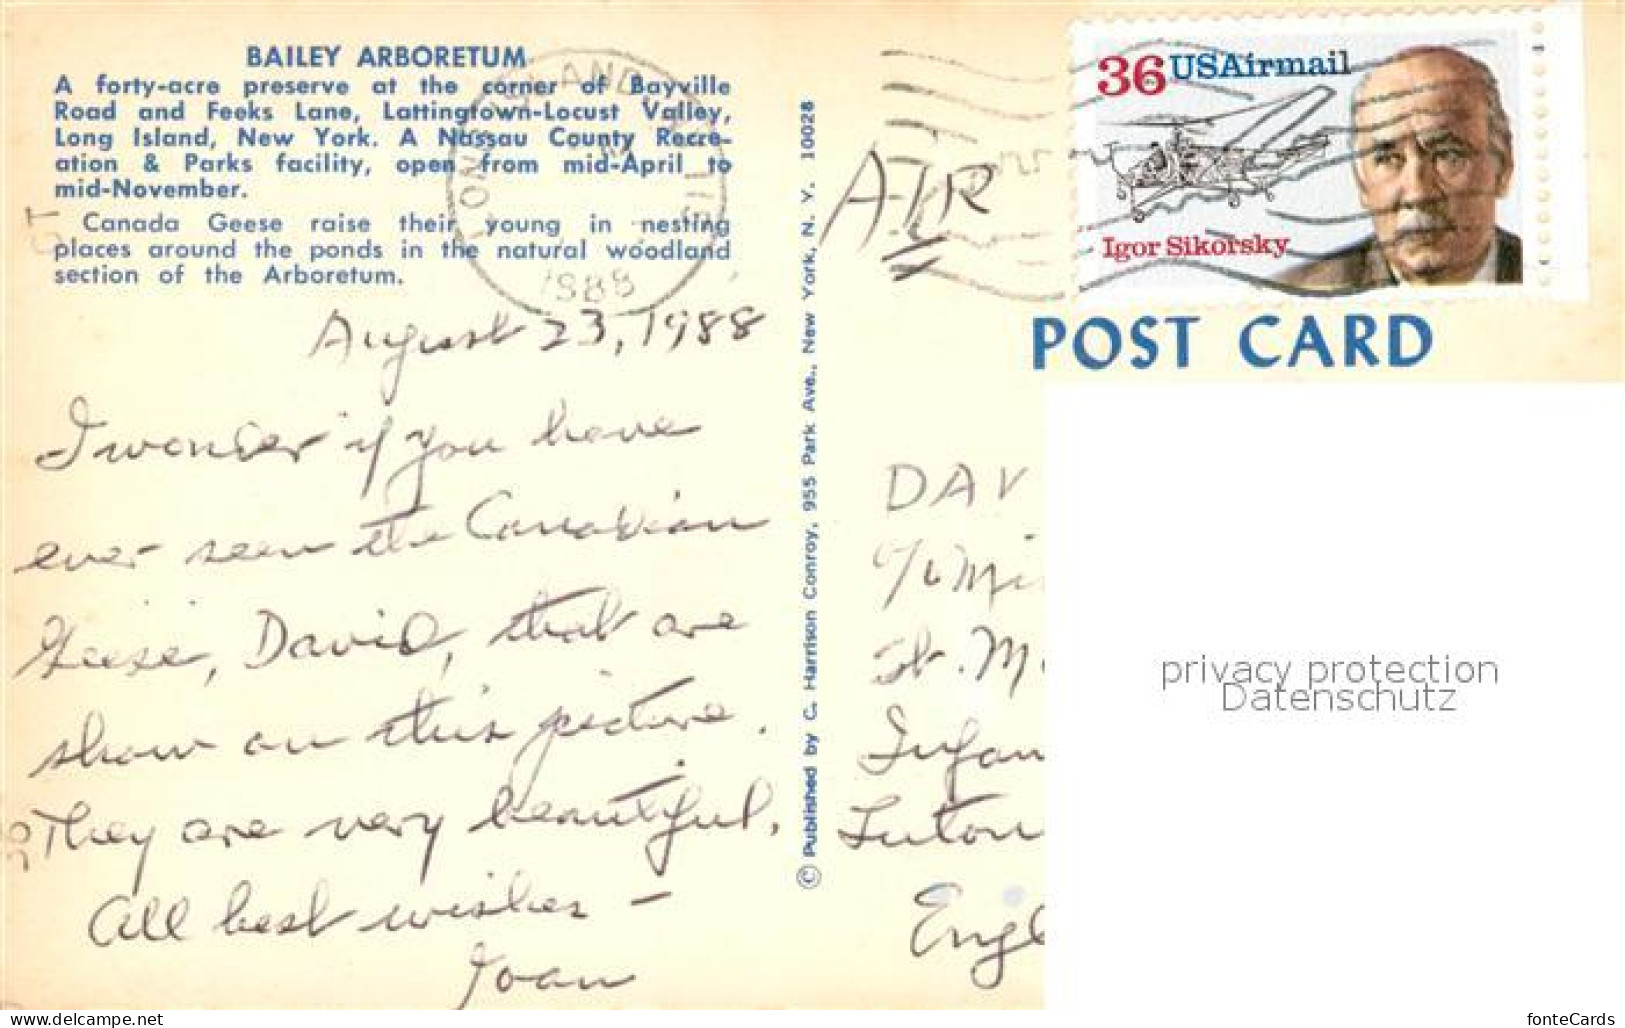 BAILEY ARBORETUM
A forty-acre preserve at the corner of Bayville
Road and Feeks Lane, Lattingtown-Locust Valley,
Long Island, New York. A Nassau County Recre-
ation & Parks facility, open from mid-April to
mid-November.
Canada Geese raise their young in nesting
places around the ponds in the natural woodland
section of the Arboretum.
1988
August 23, 1988
I wonder if you have
ever seen the Canadian
Geese, David, that are
show on this picture.
They are very beautiful.
All best wishes –
Joan
© Published by C. Harrison Conroy, 955 Park Ave., New York, N. Y. 10028
AIR
36 USAirmail
Igor Sikorsky
POST CARD
DAV
c/o Mi
St. M
Luton
Engl
privacy protection
Datenschutz
www.delcampe.net
fonteCards